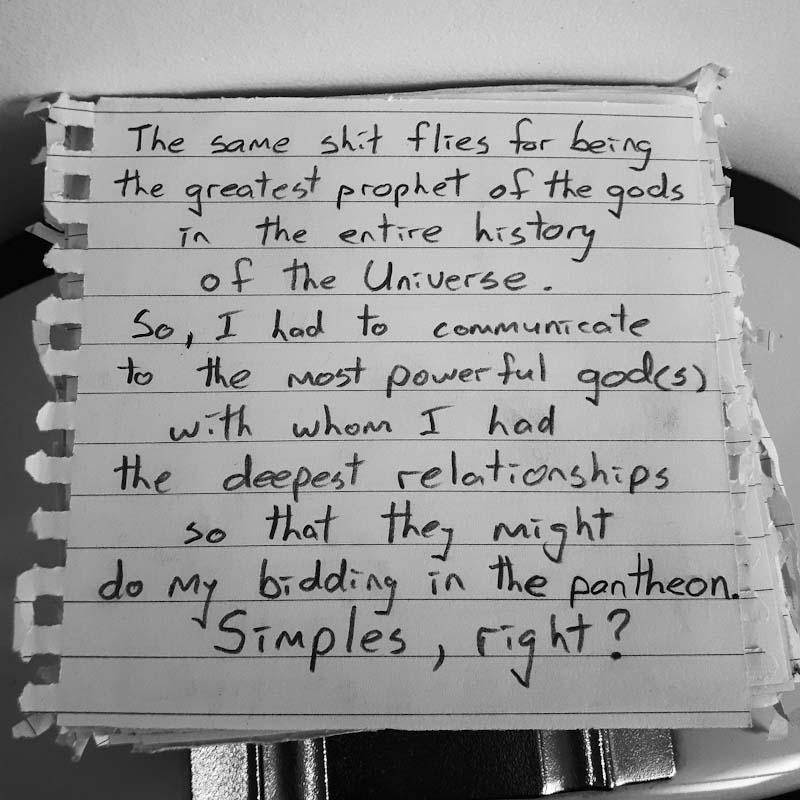 The same shit flies for being
the greatest prophet of the gods
in the entire history
of the Universe.
So, I had to communicate
to the most powerful god(s)
with whom I had
the deepest relationships
so that they might
do my bidding in the pantheon.
Simples, right?